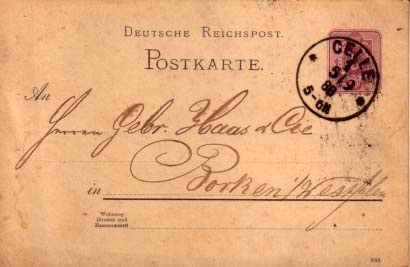 DEUTSCHE REICHSPOST.
POSTKARTE.
CELLE
5/9
88
5-6N
An
Herren Gebr. Haas & Cie
in Borken i/Westfalen
Wohnung
(Strasse und
Hausnummer)